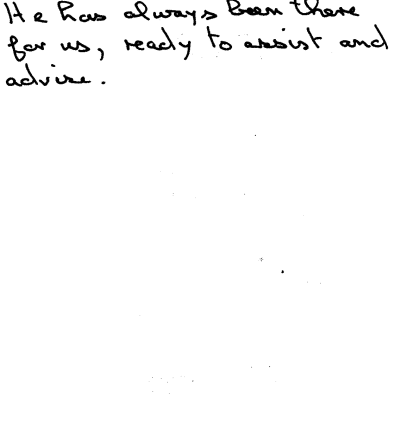 He has always been there
for us, ready to assist and
advise.